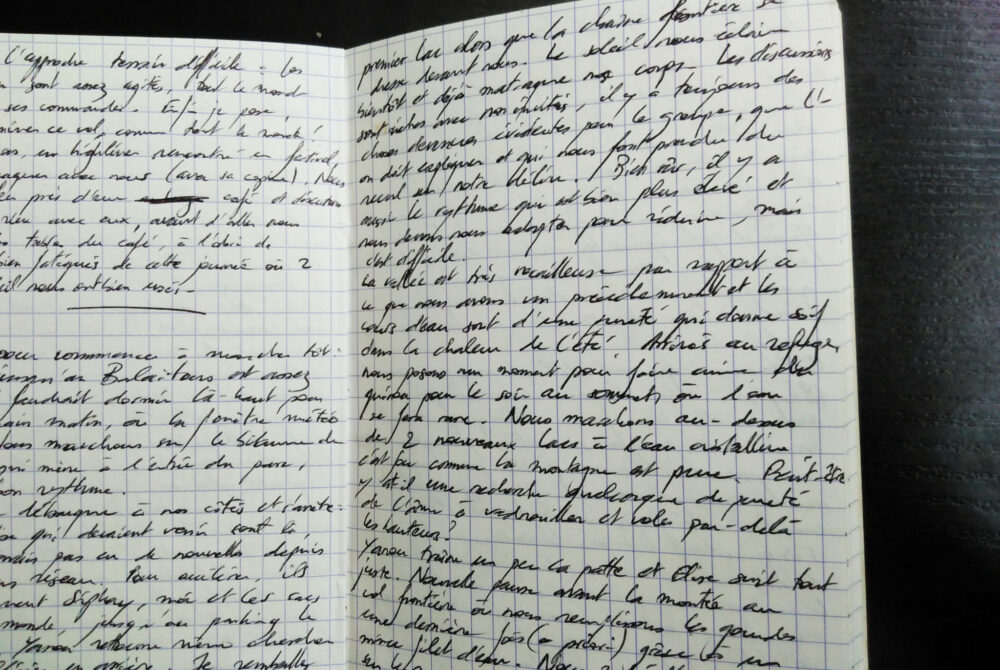 L'approche terrain difficile : les
sont assez agités, tout le monde
ses commandes. Et là je pose,
ce vol, comme tout le monde !
en highliner rencontré en festival,
avec nous (avec sa copine). Nous
près d'eux café et discutons
avec eux, avant d'aller nous
tables du café, à l'abri de
bien fatigués de cette journée où 2
nous ont bien usés.
pour commencer à marcher tôt.
jusqu'au Balaïtous est assez
faudrait dormir là-haut pour
matin, où la fenêtre météo
Nous marchons sur le bitume de
qui mène à l'entrée du parc,
bon rythme.
à nos côtés et s'arrête.
qui devaient venir sont là,
pas eu de nouvelles depuis
réseau. Pour accélérer, ils
Siphay, moi et les sacs
monde jusqu'au parking le
Yoann retourne même chercher
en arrière. Je remballe
premier lac alors que la chaîne frontière se
dresse devant nous. Le soleil nous éclaire
bientôt et déjà mat nos corps. Les discussions
sont riches avec nos invités, il y a toujours des
choses devenues évidentes pour le groupe, que l'
on doit expliquer et qui nous font prendre du
recul sur notre délire. Bien sûr, il y a
aussi le rythme qui est bien plus élevé et
nous devons nous adapter pour réduire, mais
c'est difficile.
La vallée est très merveilleuse par rapport à
ce que nous avons vu précédemment et les
cours d'eau sont d'une pureté qui donne soif
dans la chaleur de l'été. Arrivés au refuge,
nous posons un moment pour faire cuire du
quinoa pour le soir au sommet où l'eau
se fera rare. Nous marchons au-dessus
de 2 nouveaux lacs à l'eau cristalline
c'est fou comme la montagne est pure. Peut-être
y a-t-il une recherche quelconque de pureté
de l'âme à vadrouiller et voler par-delà
les hauteurs ?
Yoann traîne un peu la patte et Elise suit tout
juste. Nouvelle pause avant la montée au
col frontière où nous remplissons les gourdes
une dernière fois (a priori) grâce à un
mince filet d'eau. Nous
sur le